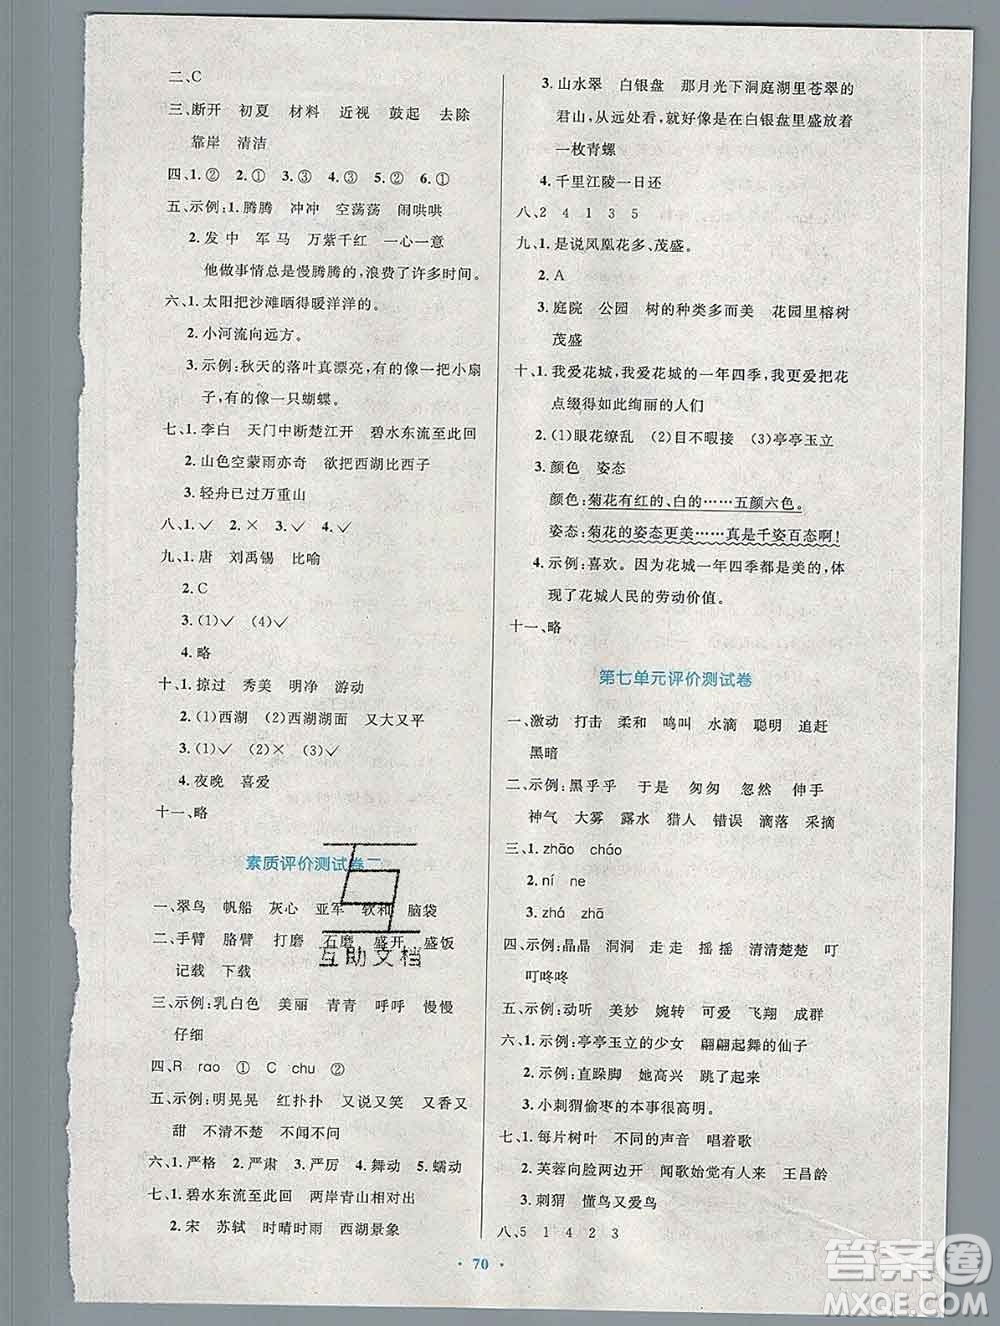 二、C
三、断开 初夏 材料 近视 鼓起 去除
靠岸 清洁
四、1.② 2.① 3.③ 4.③ 5.② 6.①
五、示例:1.腾腾 冲冲 空荡荡 闹哄哄
2.发 中 军 马 万紫千红 一心一意
他做事情总是慢腾腾的,浪费了许多时间。
六、1.太阳把沙滩晒得暖洋洋的。
2.小河流向远方。
3.示例:秋天的落叶真漂亮,有的像一把小扇
子,有的像一只蝴蝶。
七、1.李白 天门中断楚江开 碧水东流至此回
2.山色空蒙雨亦奇 欲把西湖比西子
3.轻舟已过万重山
八、1.✓ 2.× 3.✓ 4.✓
九、1.唐 刘禹锡 比喻
2.C
3.(1)✓ (4)✓
4.略
十、1.掠过 秀美 明净 游动
2.(1)西湖 (2)西湖湖面 又大又平
3.(1)✓ (2)× (3)✓
4.夜晚 喜爱
十一、略
素质评价测试卷二
一、翠鸟 帆船 灰心 亚军 软和 脑袋
二、手臂 胳臂 打磨 石磨 盛开 盛饭
记载 下载
三、示例:乳白色 美丽 青青 呼呼 慢慢
仔细
四、R rao ① C chu ②
五、示例:明晃晃 红扑扑 又说又笑 又香又
甜 不清不楚 不闻不问
六、1.严格 2.严肃 3.严厉 4.舞动 5.蠕动
七、1.碧水东流至此回 两岸青山相对出
2.宋 苏轼 时晴时雨 西湖景象
3.山水翠 白银盘 那月光下洞庭湖里苍翠的
君山,从远处看,就好像是在白银盘里盛放着
一枚青螺
4.千里江陵一日还
八、2 4 1 3 5
九、1.是说凤凰花多、茂盛。
2.A
3.庭院 公园 树的种类多而美 花园里榕树
茂盛
十、1.我爱花城,我爱花城的一年四季,我更爱把花
点缀得如此绚丽的人们
2.(1)眼花缭乱 (2)目不暇接 (3)亭亭玉立
3.颜色 姿态
颜色:菊花有红的、白的……五颜六色。
姿态:菊花的姿态更美……真是千姿百态啊!
4.示例:喜欢。因为花城一年四季都是美的,体
现了花城人民的劳动价值。
十一、略
第七单元评价测试卷
一、激动 打击 柔和 鸣叫 水滴 聪明 追赶
黑暗
二、示例:黑乎乎 于是 匆匆 忽然 伸手
神气 大雾 露水 猎人 错误 滴落 采摘
三、1.zhāo cháo
2.ní ne
3.zhá zhā
四、示例:晶晶 洞洞 走走 摇摇 清清楚楚 叮
叮咚咚
五、示例:动听 美妙 婉转 可爱 飞翔 成群
六、1.示例:亭亭玉立的少女 翩翩起舞的仙子
2.示例:直跺脚 她高兴 跳了起来
3.小刺猬偷枣的本事很高明。
七、1.每片树叶 不同的声音 唱着歌
2.芙蓉向脸两边开 闻歌始觉有人来 王昌龄
3.刺猬 懂鸟又爱鸟
八、5 1 4 2 3
互助文档
· 70 ·
答案圈
MXQE.COM